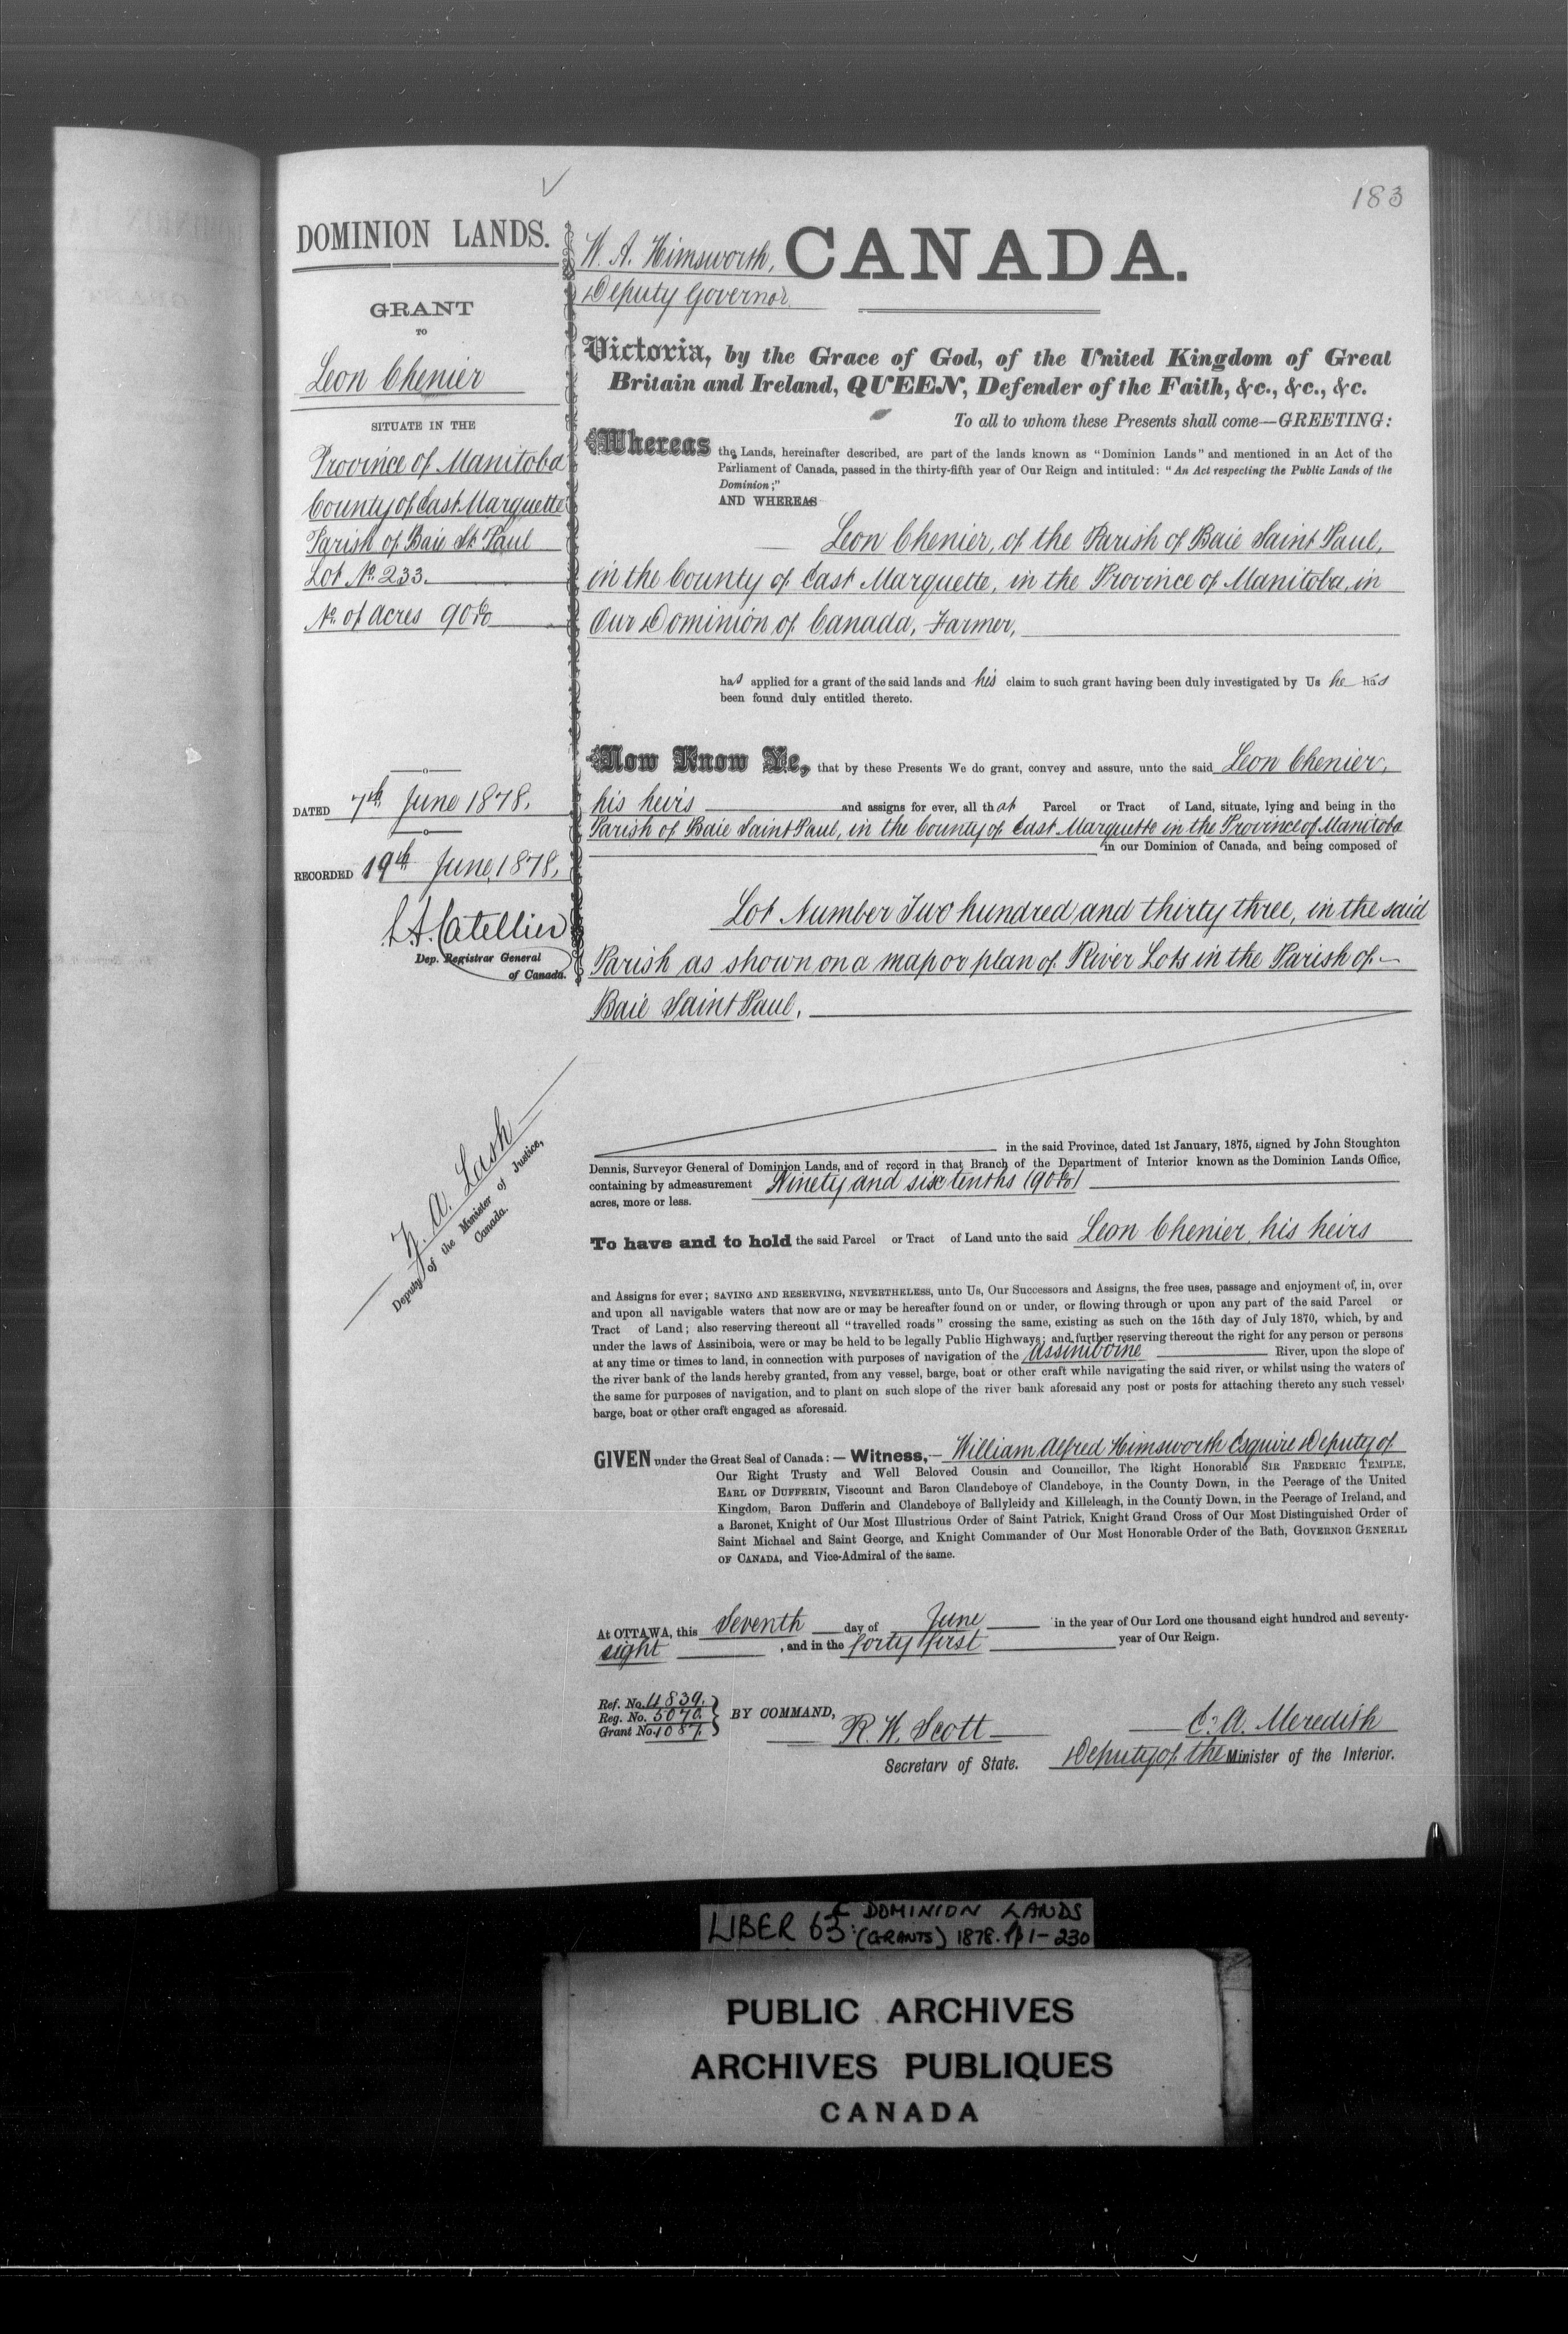 183
DOMINION LANDS.
GRANT
TO
Leon Chenier
SITUATE IN THE
Province of Manitoba
County of East Marquette
Parish of Baie St Paul
Lot No. 233.
No. of acres 90 6/10
DATED 7th June 1878.
RECORDED 19th June, 1878.
L.A. Catellier
Dep. Registrar General
of Canada.
Z. A. Lash
Deputy of the Minister of Justice,
Canada.
W. A. Himsworth,
Deputy Governor.
CANADA.
Victoria, by the Grace of God, of the United Kingdom of Great
Britain and Ireland, QUEEN, Defender of the Faith, &c., &c., &c.
To all to whom these Presents shall come—GREETING:
Whereas the Lands, hereinafter described, are part of the lands known as "Dominion Lands" and mentioned in an Act of the
Parliament of Canada, passed in the thirty-fifth year of Our Reign and intituled: "An Act respecting the Public Lands of the
Dominion;"
AND WHEREAS
Leon Chenier, of the Parish of Baie Saint Paul,
in the County of East Marquette, in the Province of Manitoba, in
Our Dominion of Canada, Farmer,
has applied for a grant of the said lands and his claim to such grant having been duly investigated by Us he has
been found duly entitled thereto.
Now Know Ye, that by these Presents We do grant, convey and assure, unto the said Leon Chenier,
his heirs and assigns for ever, all that Parcel or Tract of Land, situate, lying and being in the
Parish of Baie Saint Paul, in the County of East Marquette in the Province of Manitoba
in our Dominion of Canada, and being composed of
Lot Number Two hundred and thirty three, in the said
Parish as shown on a map or plan of River Lots in the Parish of
Baie Saint Paul,
in the said Province, dated 1st January, 1875, signed by John Stoughton
Dennis, Surveyor General of Dominion Lands, and of record in that Branch of the Department of Interior known as the Dominion Lands Office,
containing by admeasurement Ninety and six tenths (90 6/10)
acres, more or less.
To have and to hold the said Parcel or Tract of Land unto the said Leon Chenier, his heirs
and Assigns for ever; SAVING AND RESERVING, NEVERTHELESS, unto Us, Our Successors and Assigns, the free uses, passage and enjoyment of, in, over
and upon all navigable waters that now are or may be hereafter found on or under, or flowing through or upon any part of the said Parcel or
Tract of Land; also reserving thereout all "travelled roads" crossing the same, existing as such on the 15th day of July 1870, which, by and
under the laws of Assiniboia, were or may be held to be legally Public Highways; and further reserving thereout the right for any person or persons
at any time or times to land, in connection with purposes of navigation of the Assiniboine River, upon the slope of
the river bank of the lands hereby granted, from any vessel, barge, boat or other craft while navigating the said river, or whilst using the waters of
the same for purposes of navigation, and to plant on such slope of the river bank aforesaid any post or posts for attaching thereto any such vessel,
barge, boat or other craft engaged as aforesaid.
GIVEN under the Great Seal of Canada:—Witness,—William Alfred Himsworth Esquire Deputy of
Our Right Trusty and Well Beloved Cousin and Councillor, The Right Honorable SIR FREDERIC TEMPLE,
EARL OF DUFFERIN, Viscount and Baron Clandeboye of Clandeboye, in the County Down, in the Peerage of the United
Kingdom, Baron Dufferin and Clandeboye of Ballyleidy and Killeleagh, in the County Down, in the Peerage of Ireland, and
a Baronet, Knight of Our Most Illustrious Order of Saint Patrick, Knight Grand Cross of Our Most Distinguished Order of
Saint Michael and Saint George, and Knight Commander of Our Most Honorable Order of the Bath, GOVERNOR GENERAL
OF CANADA, and Vice-Admiral of the same.
At OTTAWA, this Seventh day of June in the year of Our Lord one thousand eight hundred and seventy-
eight, and in the forty first year of Our Reign.
Ref. No. 4839.
Reg. No. 5070.
Grant No. 1087.
BY COMMAND,
R. W. Scott
Secretary of State.
E. A. Meredith
Deputy of the Minister of the Interior.
LIBER 63: DOMINION LANDS
(GRANTS) 1878. pp 1-230
PUBLIC ARCHIVES
ARCHIVES PUBLIQUES
CANADA